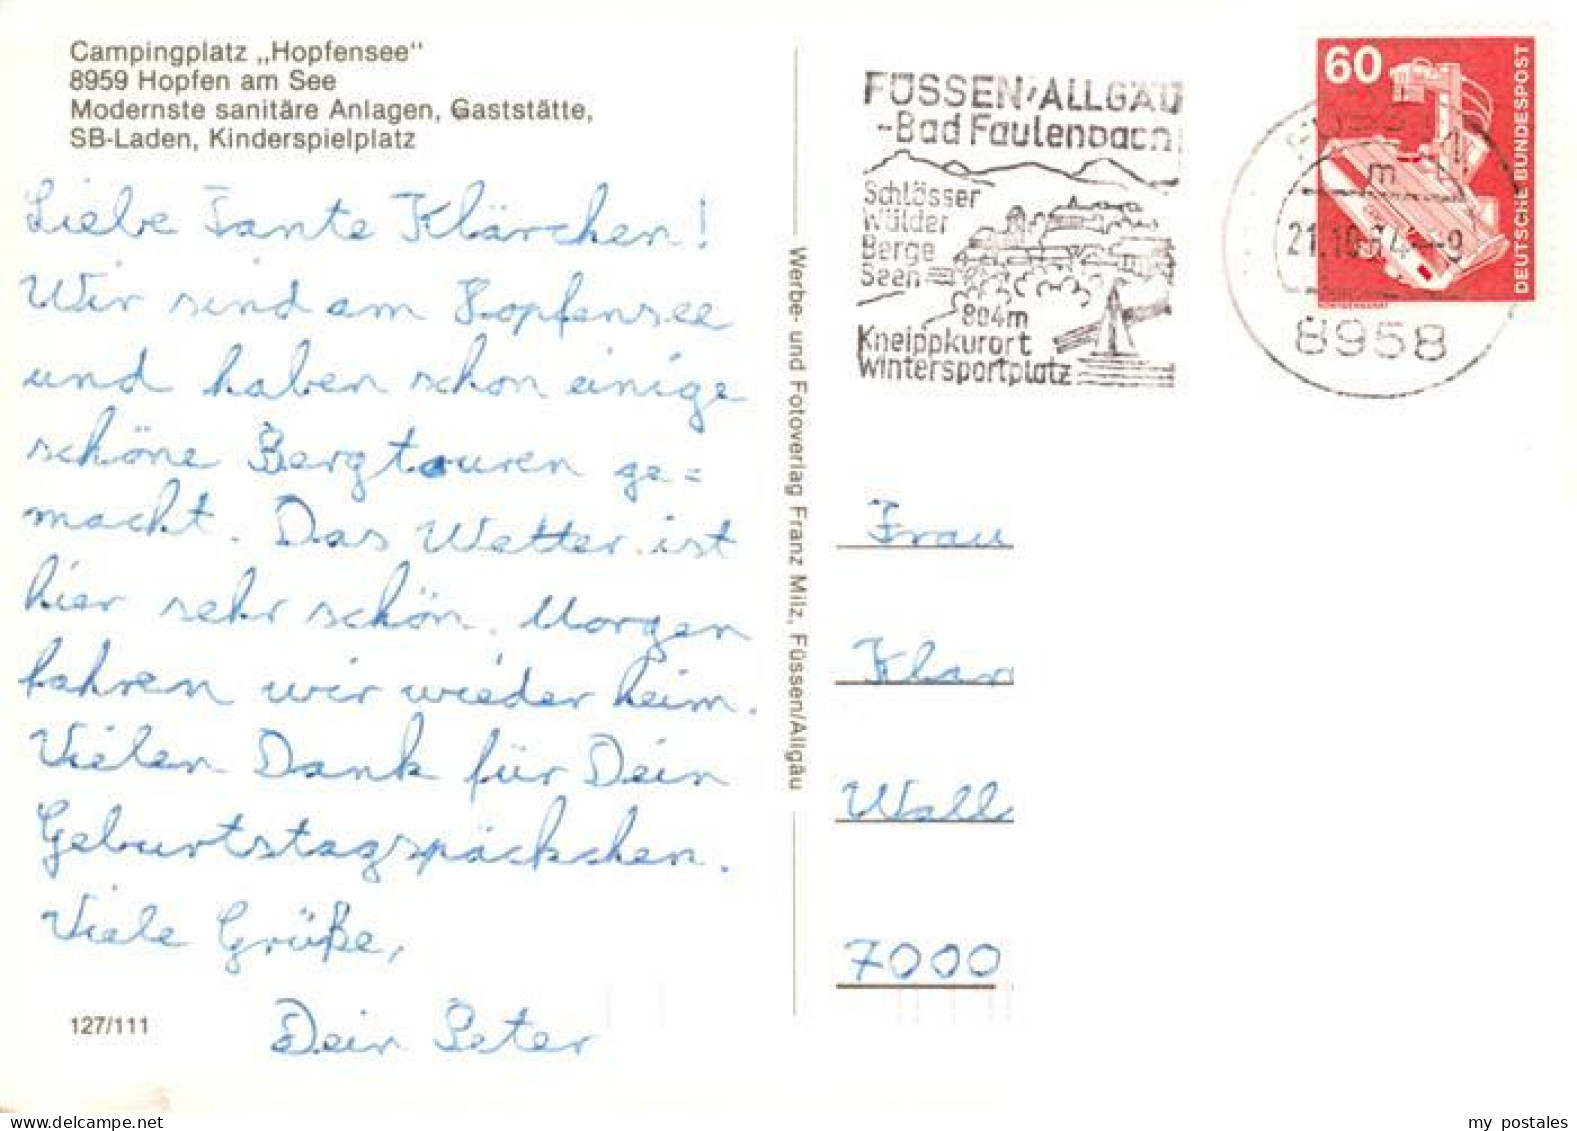 Campingplatz „Hopfensee"
8959 Hopfen am See
Modernste sanitäre Anlagen, Gaststätte,
SB-Laden, Kinderspielplatz
Liebe Tante Klärchen!
Wir sind am Hopfensee
und haben schon einige
schöne Bergtouren ge=
macht. Das Wetter ist
hier sehr schön. Morgen
fahren wir wieder heim.
Vielen Dank für Dein
Geburtstagspäckchen.
Viele Grüße,
Dein Peter
127/111
Werbe- und Fotoverlag Franz Milz, Füssen/Allgäu
FÜSSEN/ALLGÄU
-Bad Faulenbach
Schlösser
Wälder
Berge
Seen
804m
Kneippkurort
Wintersportplatz
60
DEUTSCHE BUNDESPOST
m
8958
Frau
Klar
Wall
7000
my postales